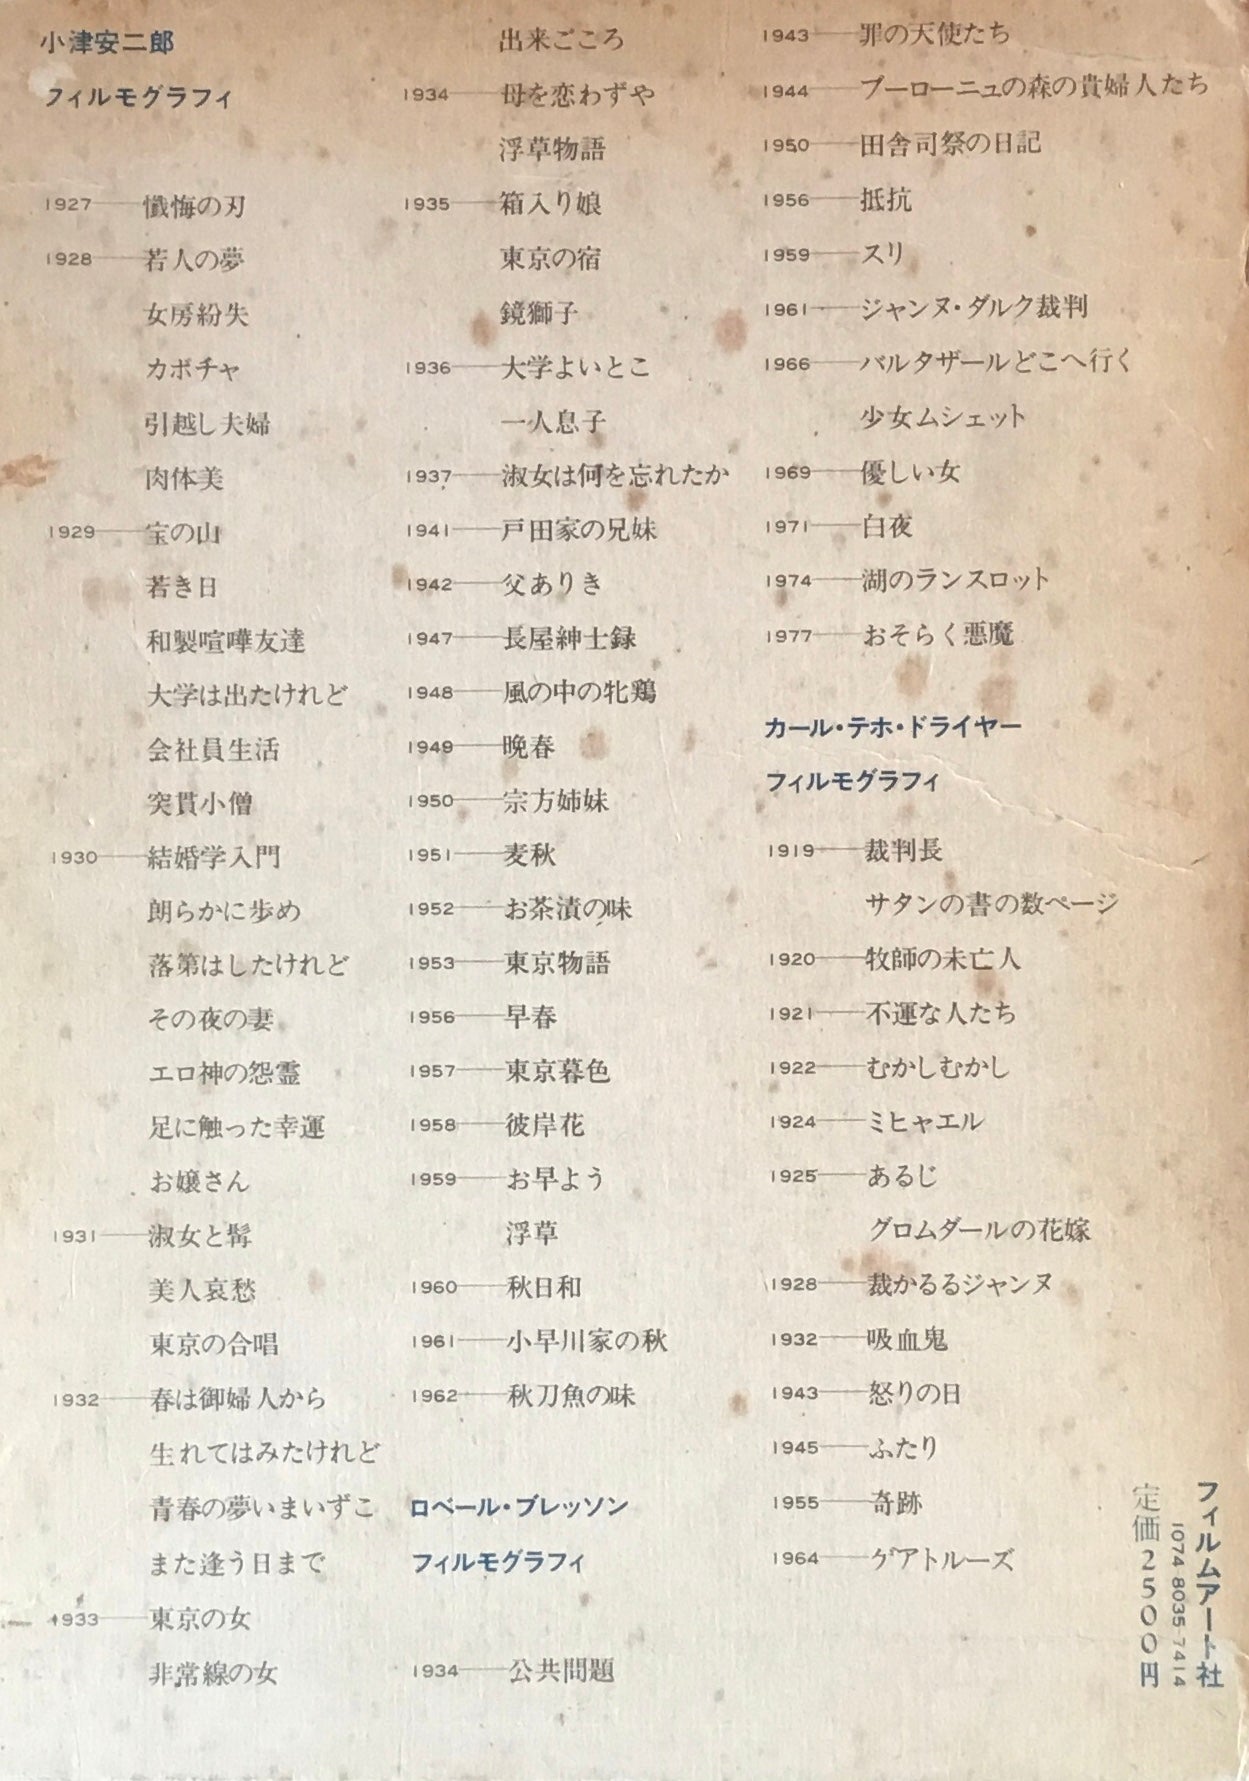 小津安二郎
フィルモグラフィ
1927——懺悔の刃
1928——若人の夢
女房紛失
カボチャ
引越し夫婦
肉体美
1929——宝の山
若き日
和製喧嘩友達
大学は出たけれど
会社員生活
突貫小僧
1930——結婚学入門
朗らかに歩め
落第はしたけれど
その夜の妻
エロ神の怨霊
足に触った幸運
お嬢さん
1931——淑女と髯
美人哀愁
東京の合唱
1932——春は御婦人から
生れてはみたけれど
青春の夢いまいずこ
また逢う日まで
1933——東京の女
非常線の女
出来ごころ
1934——母を恋わずや
浮草物語
1935——箱入り娘
東京の宿
鏡獅子
1936——大学よいとこ
一人息子
1937——淑女は何を忘れたか
1941——戸田家の兄妹
1942——父ありき
1947——長屋紳士録
1948——風の中の牝鶏
1949——晩春
1950——宗方姉妹
1951——麦秋
1952——お茶漬の味
1953——東京物語
1956——早春
1957——東京暮色
1958——彼岸花
1959——お早よう
浮草
1960——秋日和
1961——小早川家の秋
1962——秋刀魚の味
ロベール・ブレッソン
フィルモグラフィ
1934——公共問題
1943——罪の天使たち
1944——ブーローニュの森の貴婦人たち
1950——田舎司祭の日記
1956——抵抗
1959——スリ
1961——ジャンヌ・ダルク裁判
1966——バルタザールどこへ行く
少女ムシェット
1969——優しい女
1971——白夜
1974——湖のランスロット
1977——おそらく悪魔
カール・テホ・ドライヤー
フィルモグラフィ
1919——裁判長
サタンの書の数ページ
1920——牧師の未亡人
1921——不運な人たち
1922——むかしむかし
1924——ミヒャエル
1925——あるじ
グロムダールの花嫁
1928——裁かるるジャンヌ
1932——吸血鬼
1943——怒りの日
1945——ふたり
1955——奇跡
1964——ゲアトルーズ
フィルムアート社
1074-8035-7414
定価2500円